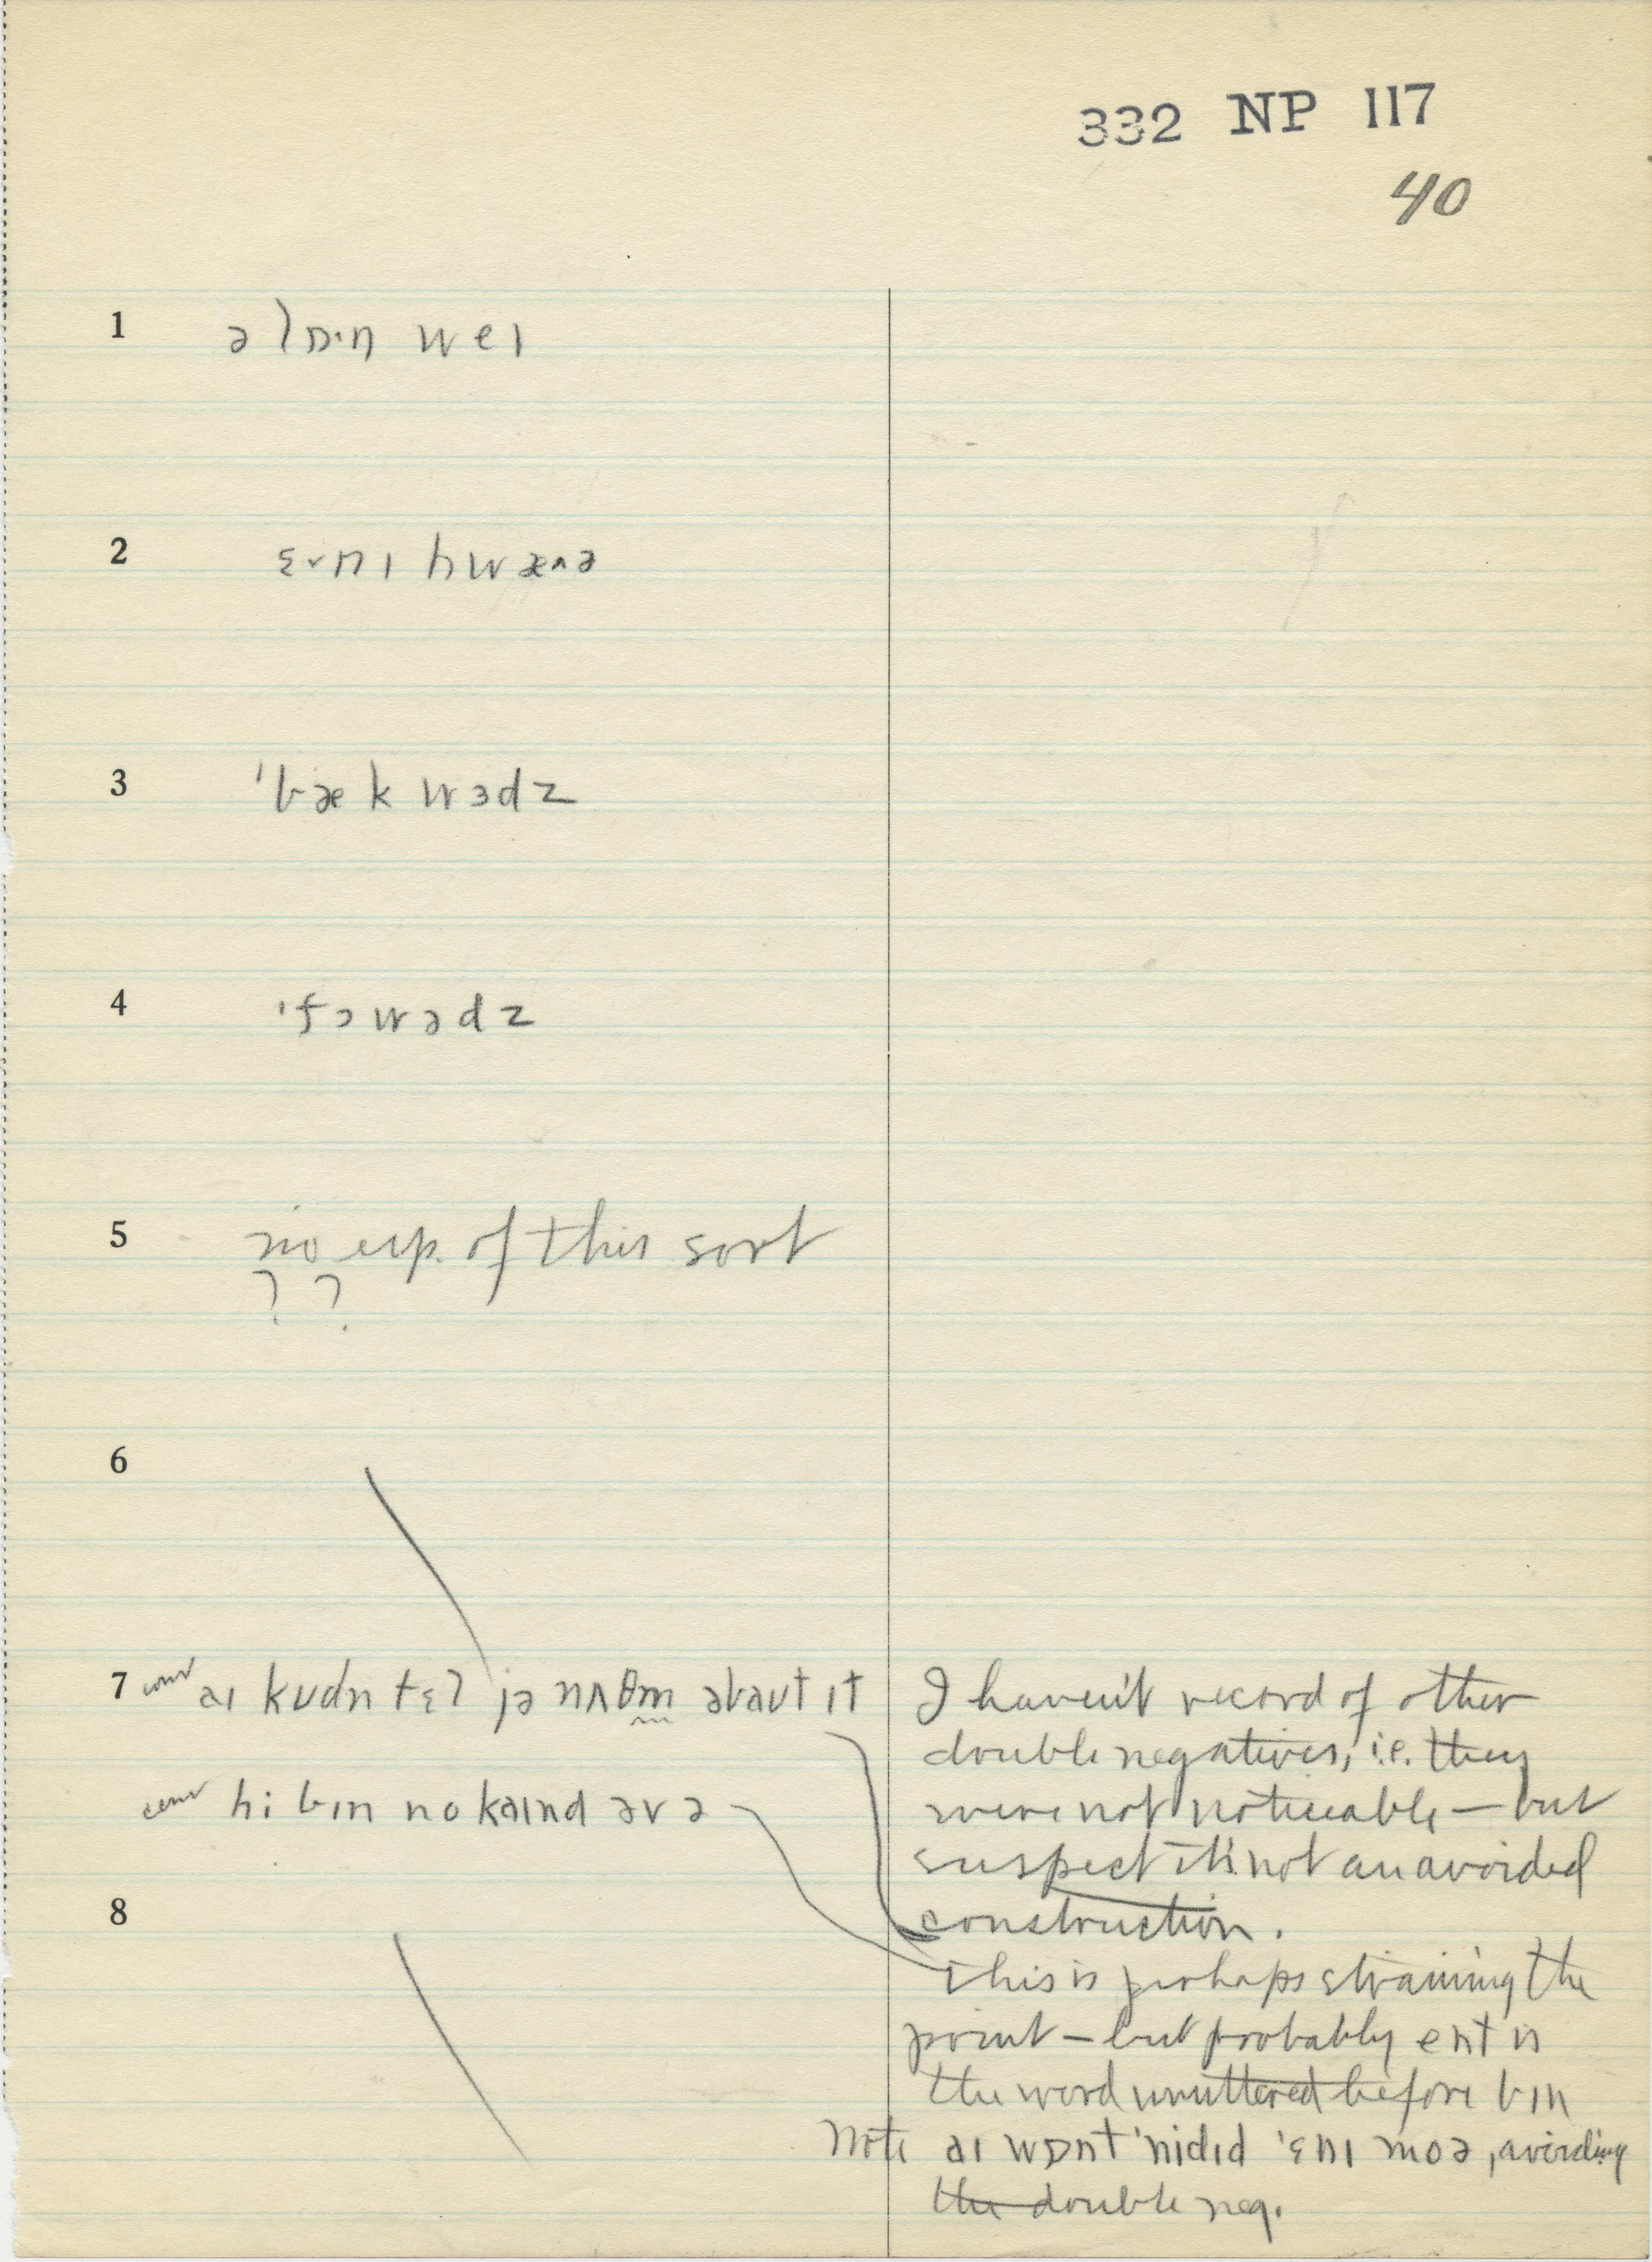 332 NP 117
40
1 ə lɒ·ŋ weɪ
2 ɛ˅nɪ hwæ˄ə
3 ˈbæk wɜdz
4 ˈfɔwədz
5 no exp. of this sort
? ?
6
7 conv aɪ kʊdn tɛl jə nʌθm̩ əbaut ɪt
conv hi bɪn no kaɪnd əv ə
8
I haven't record of other
double negatives, i.e. they
were not noticeable — but
suspect it's not an avoided
construction.
This is perhaps straining the
point — but probably ent is
the word unuttered before bɪn
Note aɪ wɒnt ˈnidɪd ˈɛnɪ moə, avoiding
the double neg.